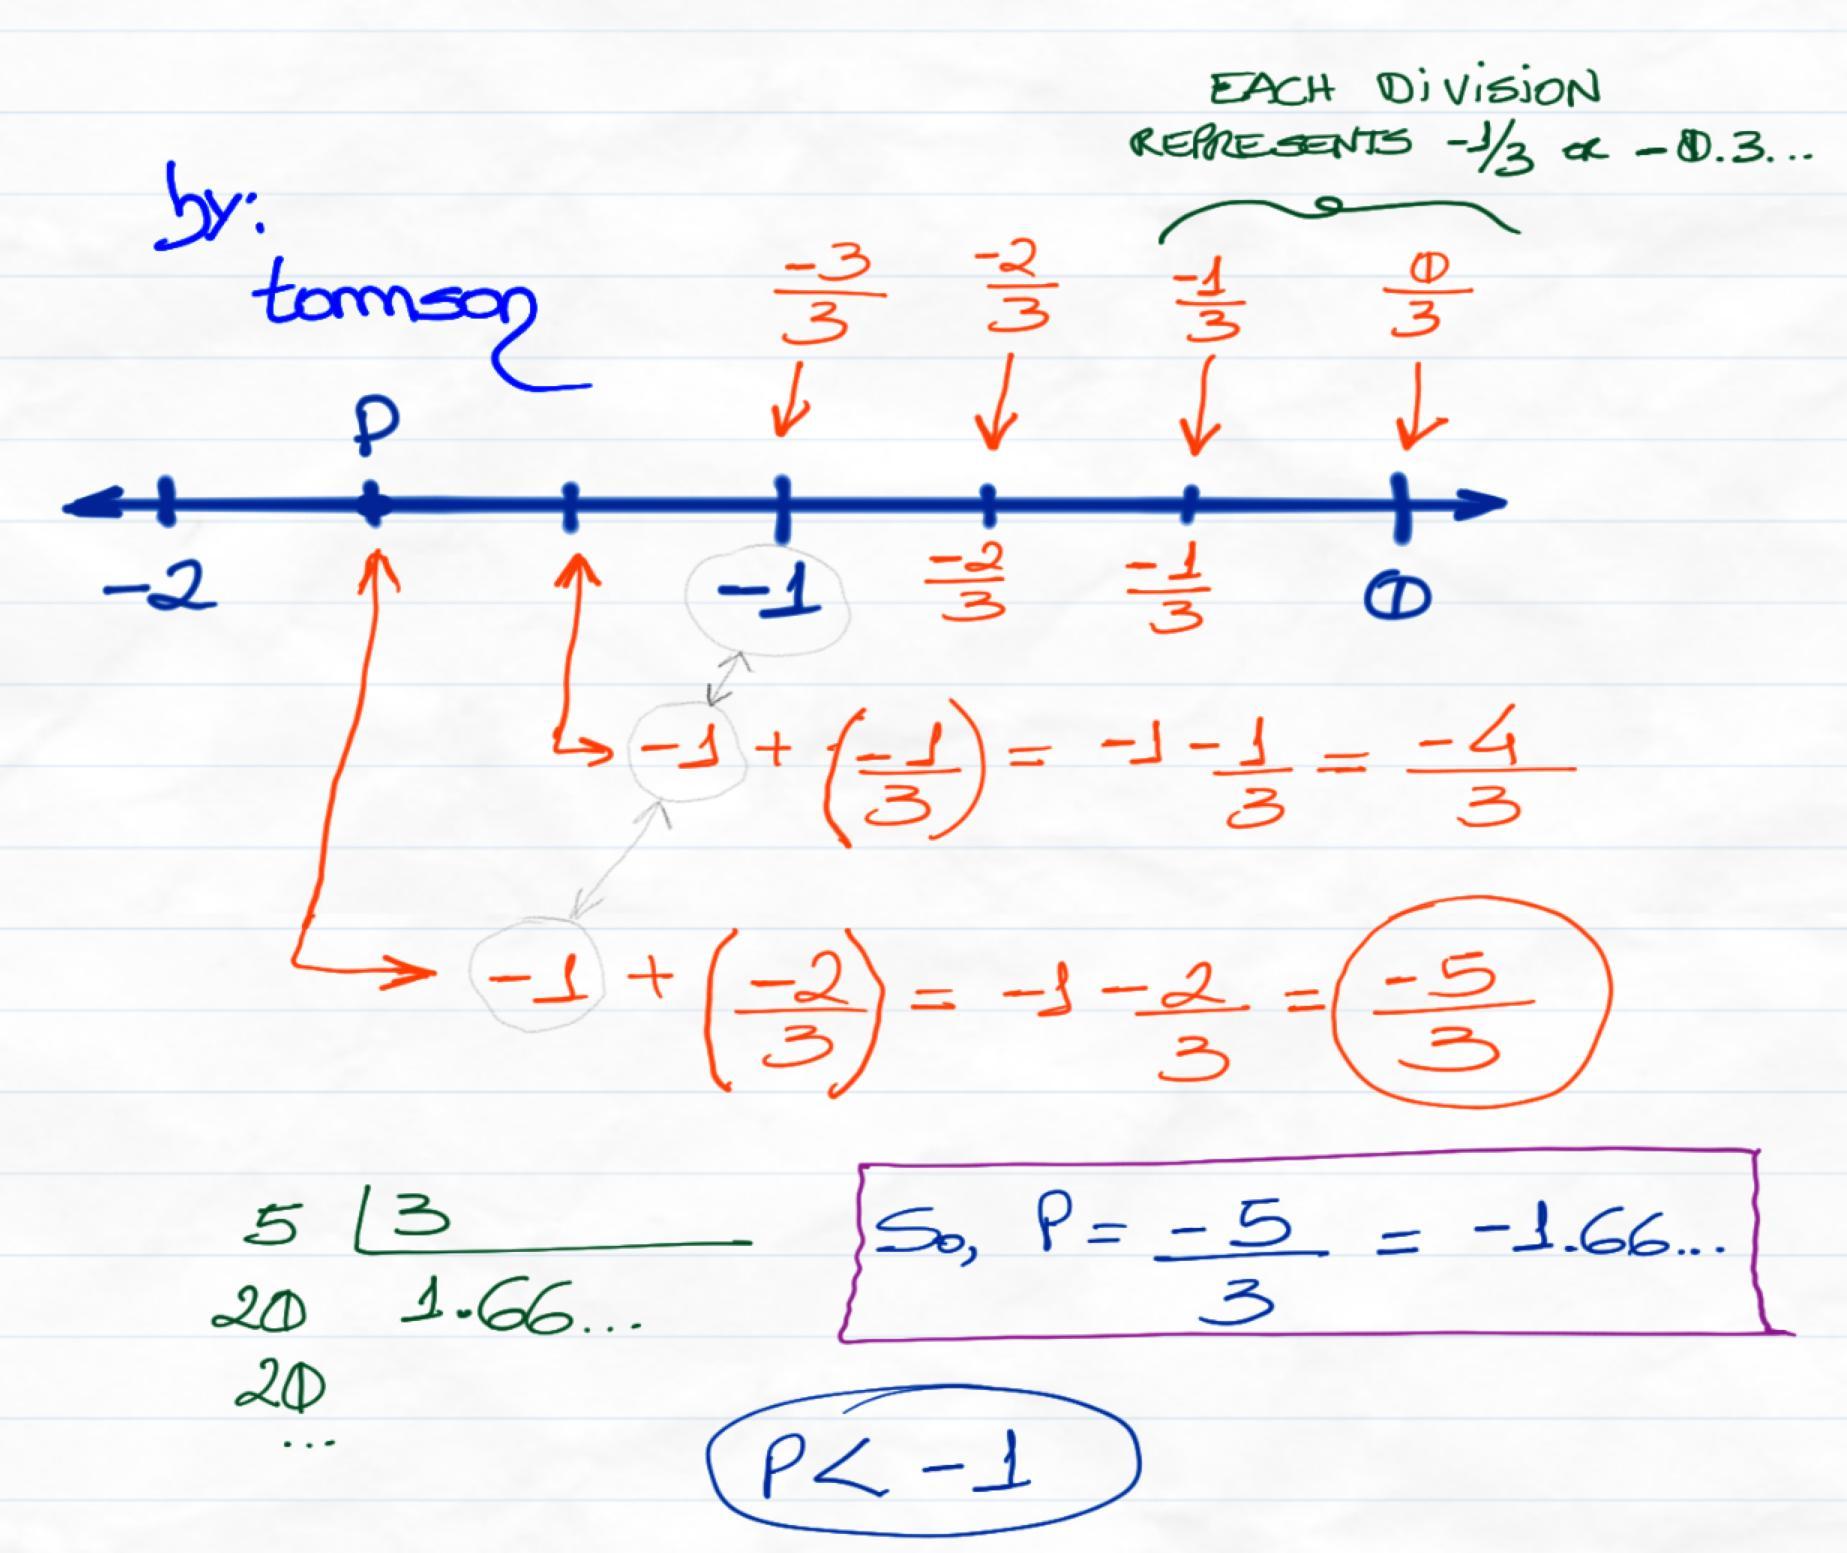 EACH DIVISION
REPRESENTS -1/3 or -0.3...
by:
tomson
-3/3 -2/3 -1/3 0/3
P
-2 -1 -2/3 -1/3 0
-1 + (-1/3) = -1 - 1/3 = -4/3
-1 + (-2/3) = -1 - 2/3 = -5/3
5 3
20 1.66...
20
...
So, P = -5/3 = -1.66...
P < -1